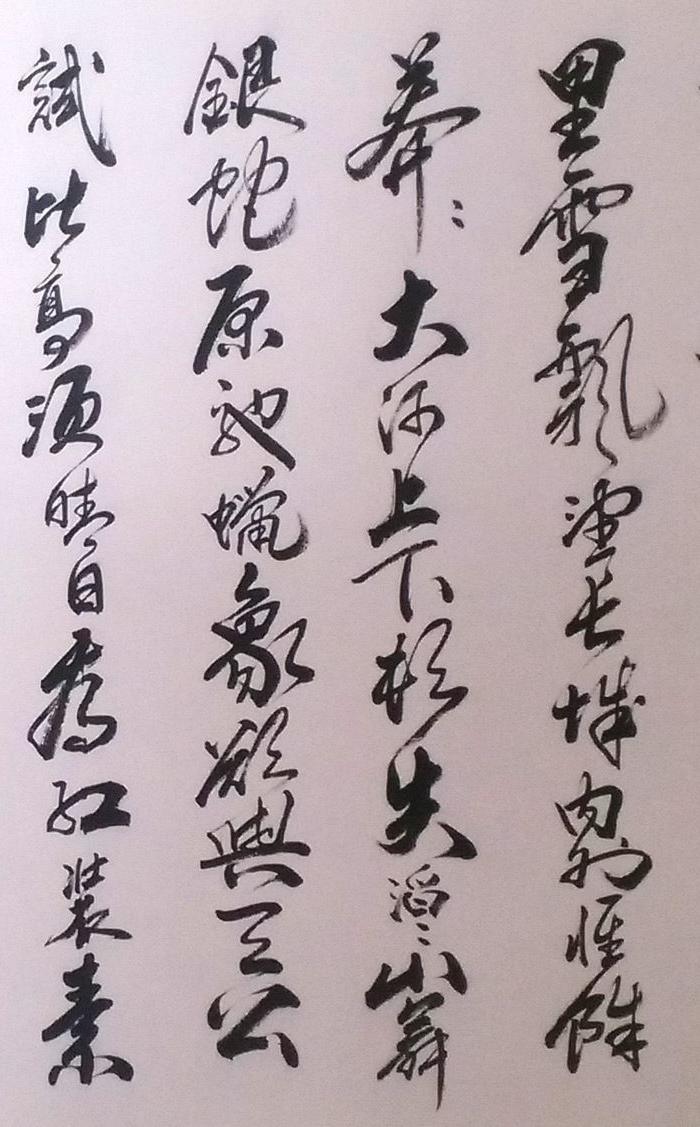 里雪飄望長城内外惟餘
莽〻大河上下頓失滔〻山舞
銀蛇原馳蠟象欲與天公
試比高須晴日看紅裝素